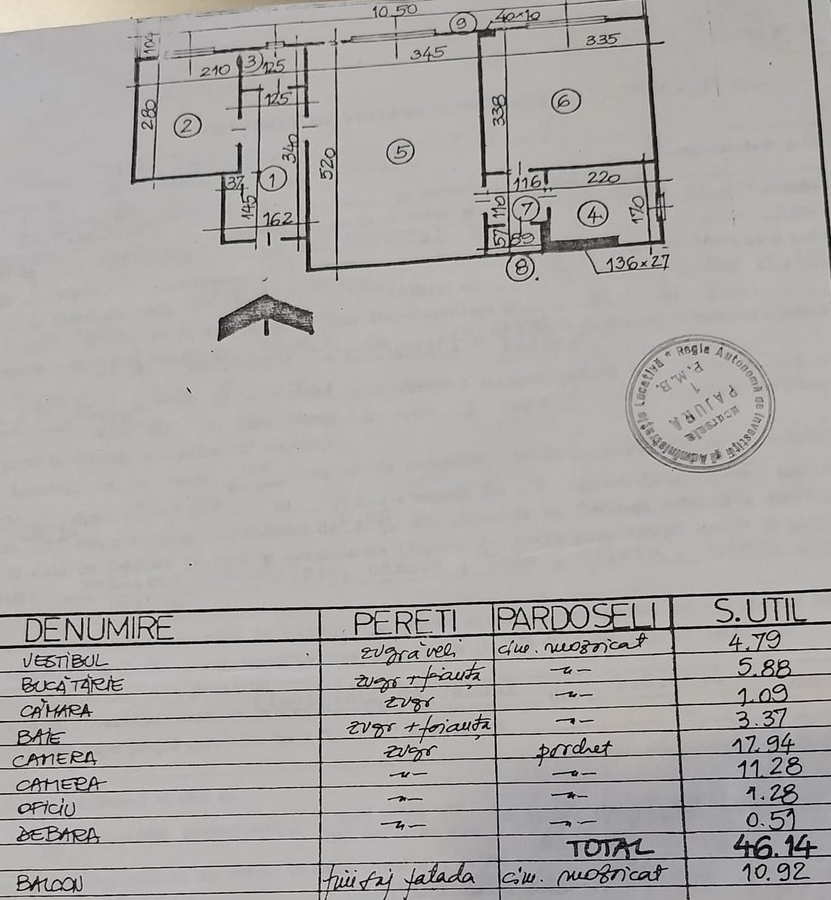 10.50
104
9
40×10
210
3
125
345
335
125
280
2
338
6
5
340
520
37
1
116
220
145
7
110
4
170
162
57
89
8
136×27
Regia Autonomă de Investiții și Administrație Locativă *
P.M.B.
1
PAJURA
DENUMIRE PEREȚI PARDOSELI S.UTIL
VESTIBUL zugrăveli cim. mozaicat 4.79
BUCĂTĂRIE zugr + faianță -"- 5.88
CĂMARA zugr -"- 1.09
BAIE zugr + faianță -"- 3.37
CAMERA zugr parchet 17.94
CAMERA -"- -"- 11.28
OFICIU -"- -"- 1.28
DEBARA -"- -"- 0.51
TOTAL 46.14
BALCON fațada cim. mozaicat 10.92